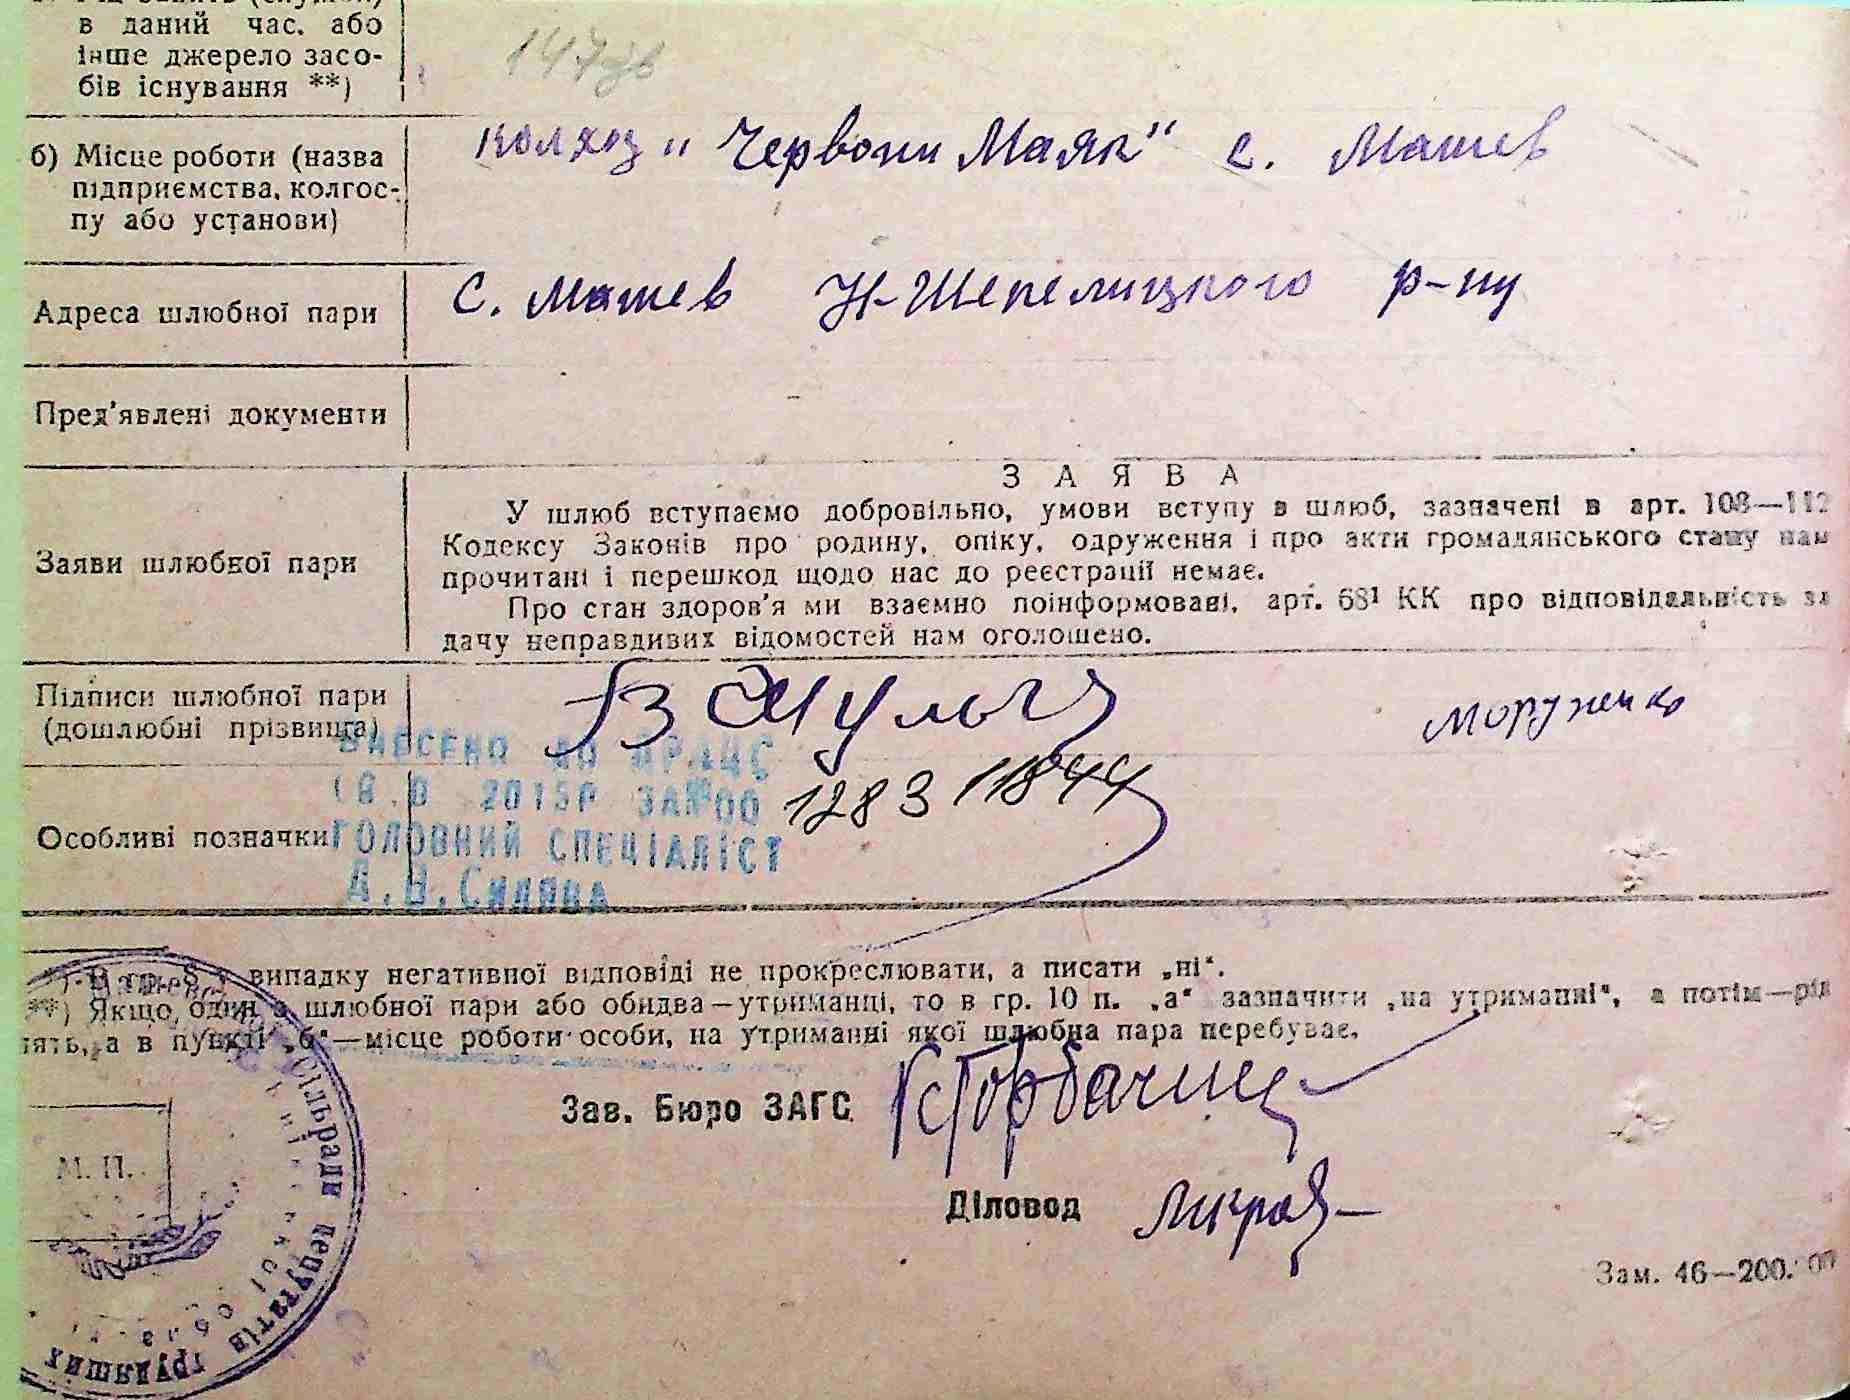 в даний час, або
інше джерело засо-
бів існування **)
147
б) Місце роботи (назва
підприємства, колгос-
пу або установи)
колхоз „Червони Маяк" с. Машев
Адреса шлюбної пари
с. Машев Н-Шепелицкого р-ну
Пред'явлені документи
Заяви шлюбної пари
ЗАЯВА
У шлюб вступаємо добровільно, умови вступу в шлюб, зазначені в арт. 108—112
Кодексу Законів про родину, опіку, одруження і про акти громадянського стану нам
прочитані і перешкод щодо нас до реєстрації немає.
Про стан здоров'я ми взаємно поінформовані, арт. 68¹ КК про відповідальність за
дачу неправдивих відомостей нам оголошено.
Підписи шлюбної пари
(дошлюбні прізвища)
Моруженко
ВНЕСЕНО ДО ДРАЦС
2015Р ЗА№00 1283 11844
Особливі позначки
ГОЛОВНИЙ СПЕЦІАЛІСТ
випадку негативної відповіді не прокреслювати, а писати „ні".
**) Якщо, один з шлюбної пари або обидва—утриманці, то в гр. 10 п. „а" зазначити „на утриманні", а потім—рід
нять, а в пункті „б"—місце роботи особи, на утриманні якої шлюбна пара перебуває.
Зав. Бюро ЗАГС
Діловод
М. П.
сільради депутатів трудящих
Зам. 46—200.